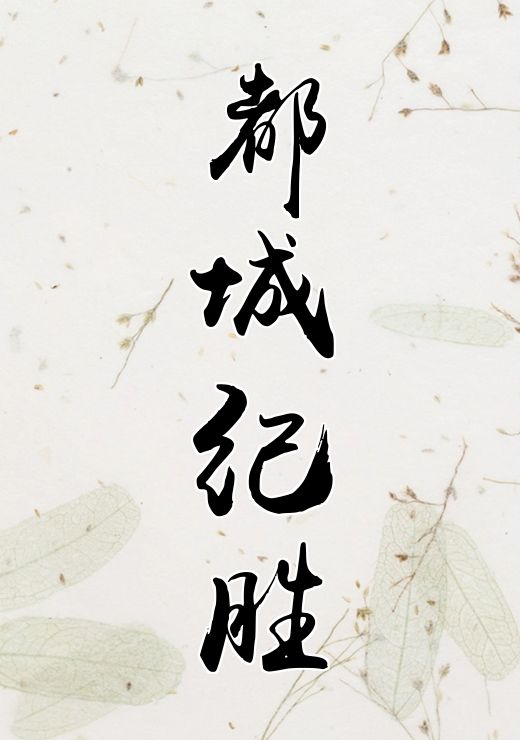 都城纪胜